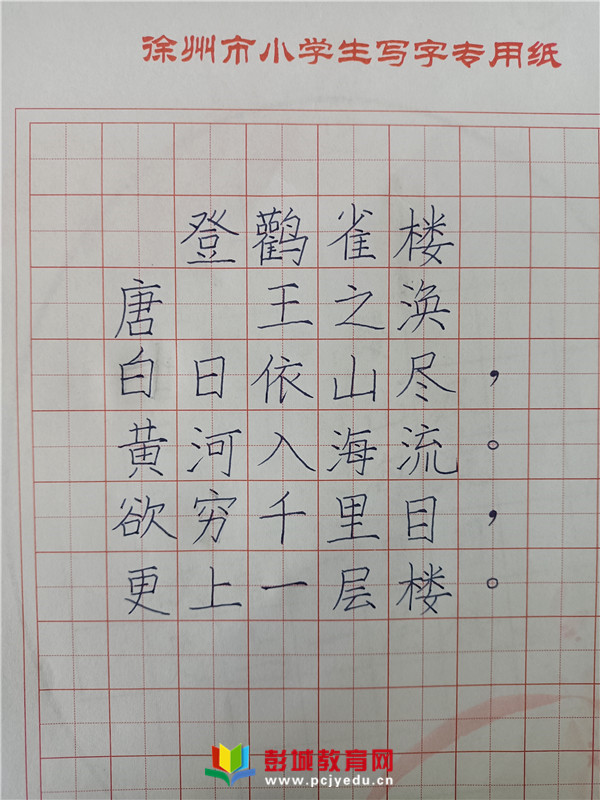 徐州市小学生写字专用纸
登鹳雀楼
唐 王之涣
白日依山尽，
黄河入海流。
欲穷千里目，
更上一层楼。
彭城教育网
www.pcjyedu.cn